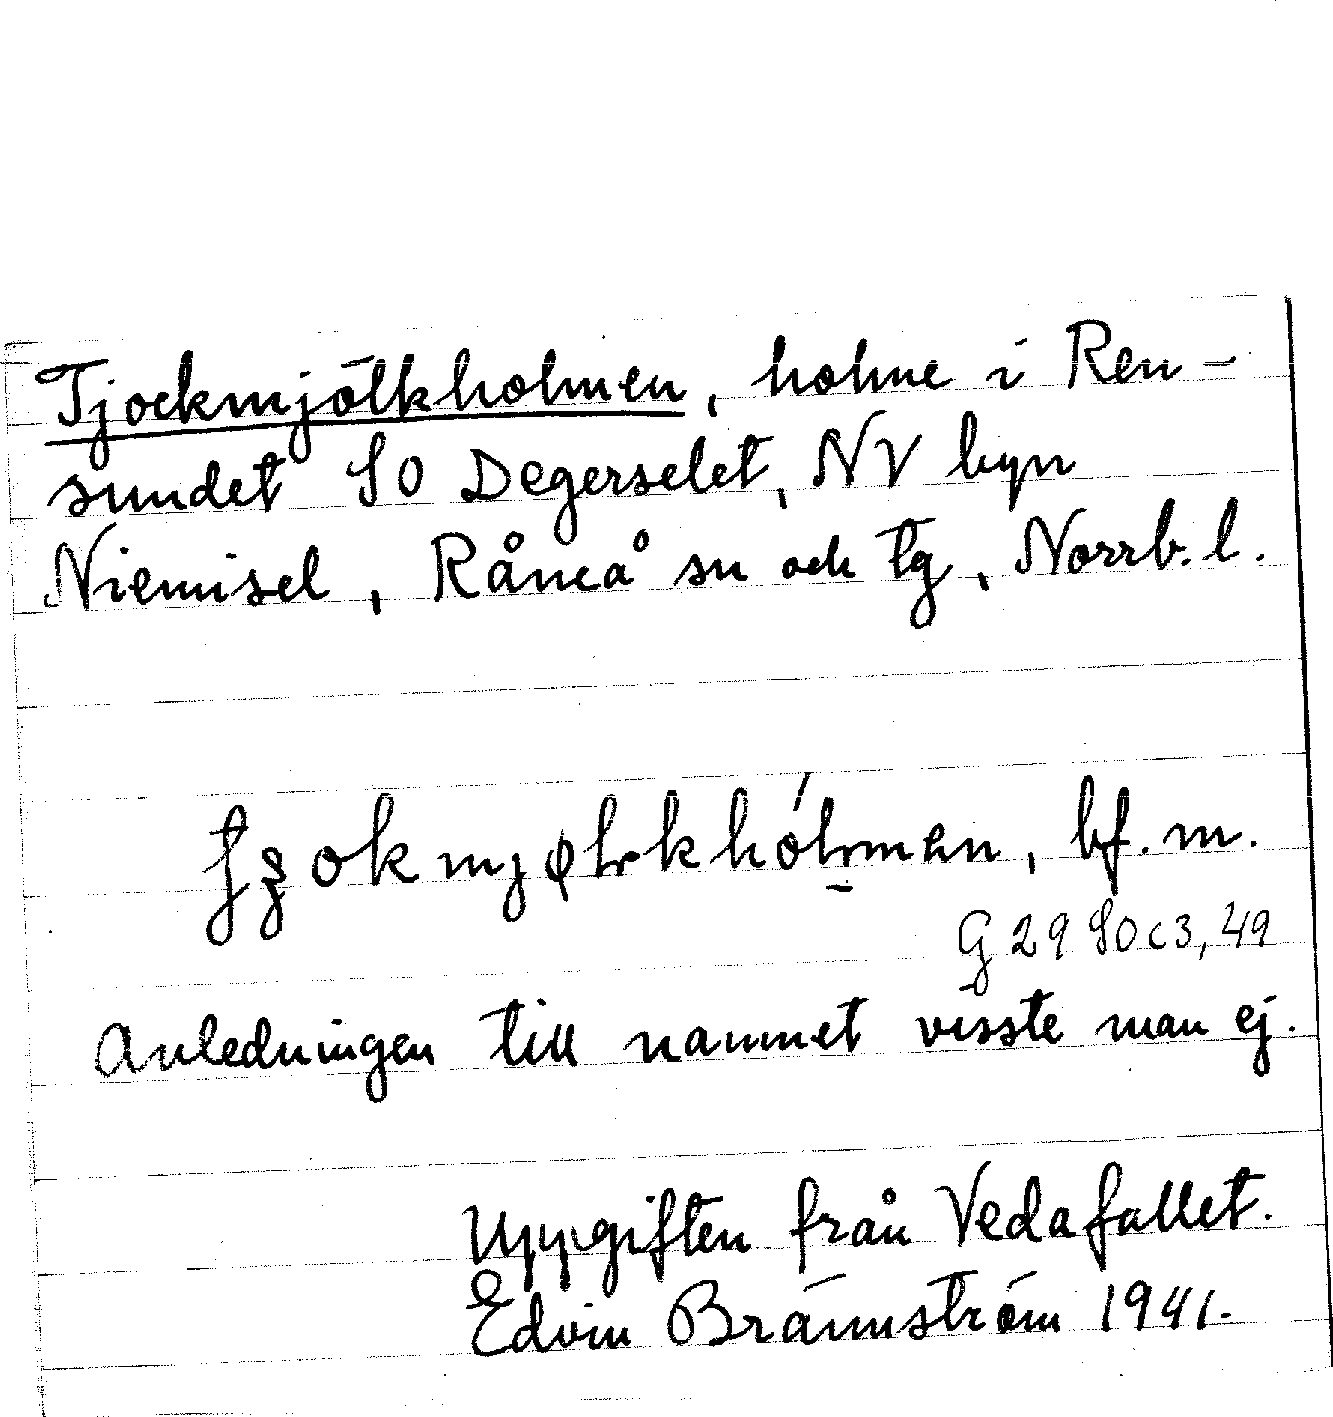 Tjockmjölkholmen, holme i Ren-
sundet SO Degerselet, NV byn
Niemisel, Råneå sn och tg, Norrb. l.
bf. m.
G 29 SO c 3, 49
Anledningen till namnet visste man ej.
Uppgiften från Vedafallet.
Edvin Brännström 1941.